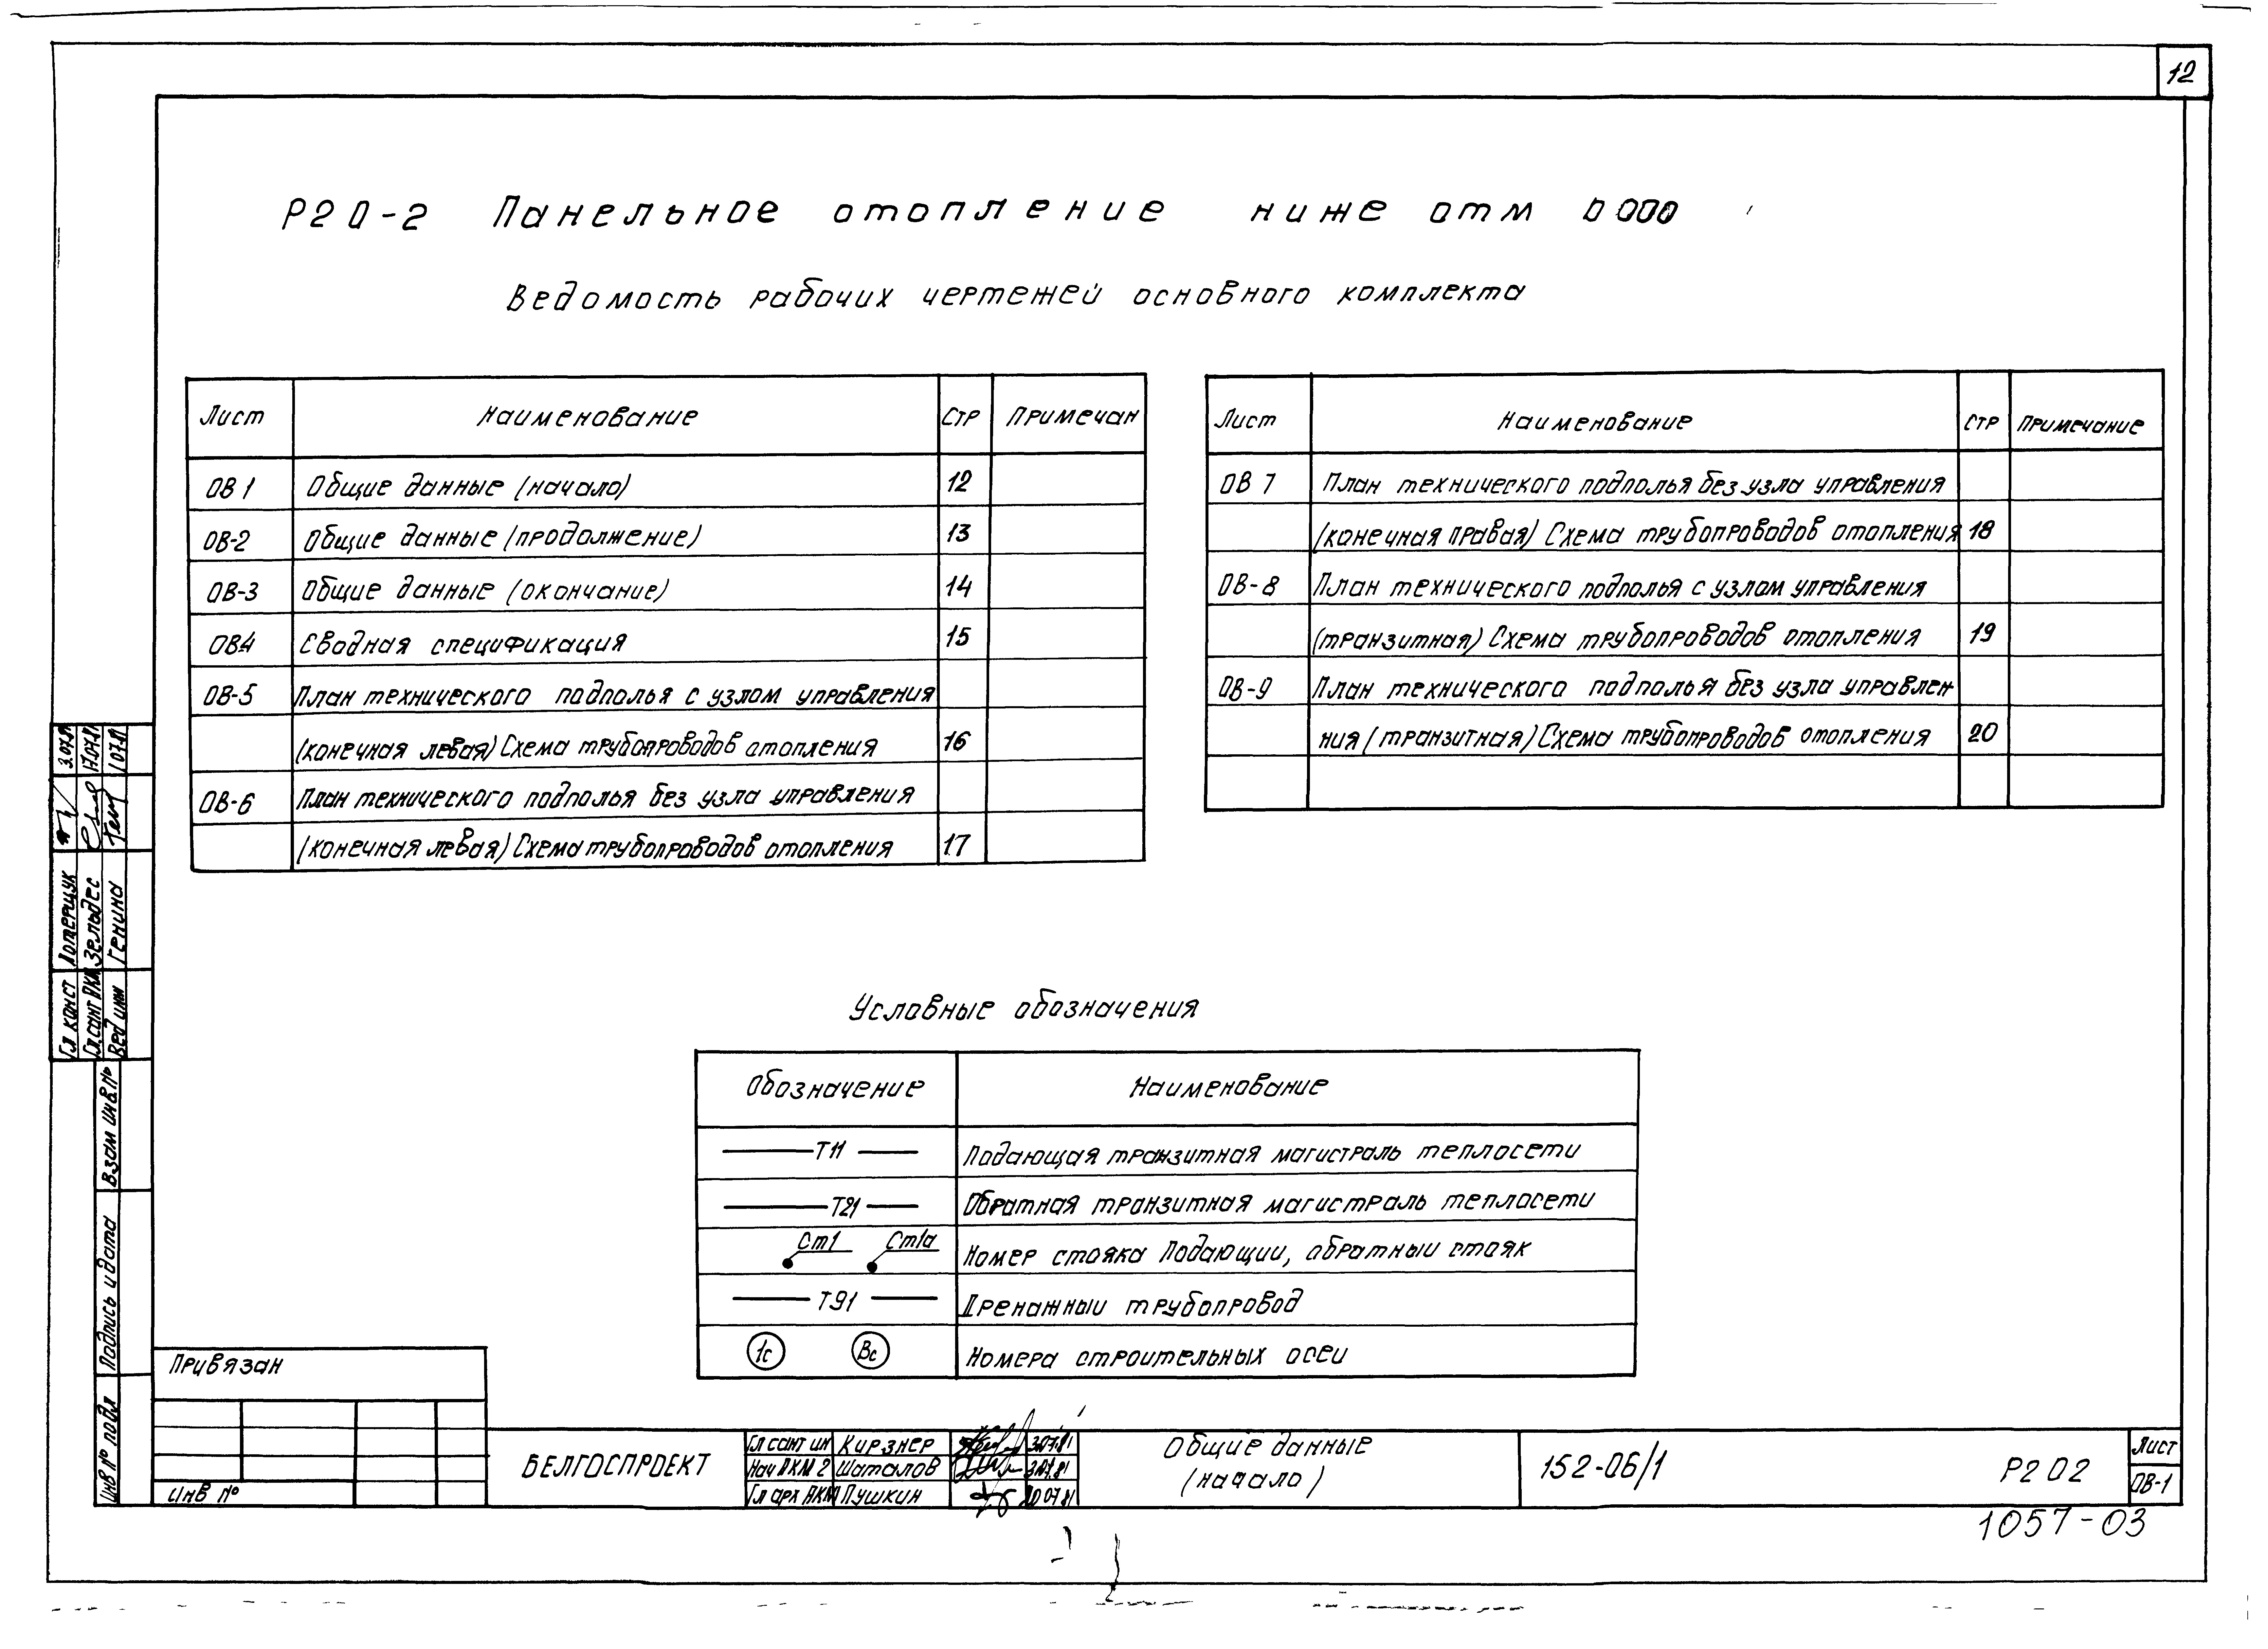 12
Р20-2 Панельное отопление ниже отм 0000
Ведомость рабочих чертежей основного комплекта
Лист Наименование Стр Примечан
ОВ 1 Общие данные (начало) 12
ОВ-2 Общие данные (продолжение) 13
ОВ-3 Общие данные (окончание) 14
ОВ-4 Сводная спецификация 15
ОВ-5 План технического подполья с узлом управления
(конечная левая) Схема трубопроводов отопления 16
ОВ-6 План технического подполья без узла управления
(конечная левая) Схема трубопроводов отопления 17
Лист Наименование Стр Примечание
ОВ 7 План технического подполья без узла управления
(конечная правая) Схема трубопроводов отопления 18
ОВ-8 План технического подполья с узлом управления
(транзитная) Схема трубопроводов отопления 19
ОВ-9 План технического подполья без узла управлен
ния (транзитная) Схема трубопроводов отопления 20
Условные обозначения
Обозначение Наименование
Т11 Подающая транзитная магистраль теплосети
Т21 Обратная транзитная магистраль теплосети
Ст1 Ст1а Номер стояка Подающии, обратныи стояк
Т91 Дренажныи трубопровод
1с Вс Номера строительных осеи
Гл конст Лотерщук 3.07.81
Гл.сант АКМ Зельдес 17.07.81
Вед инж Генина 1 07.81
Взам инв.№
Подпись и дата
Инв № подл
Привязан
Инв №
БЕЛГОСПРОЕКТ
Гл сант ин Кирзнер 3.07.81
Нач АКМ 2 Шаталов 3.07.81
Гл арх АКМ Пушкин 07 81
Общие данные
(начало)
152-06/1
Р2 02
Лист
ОВ-1
1057-03